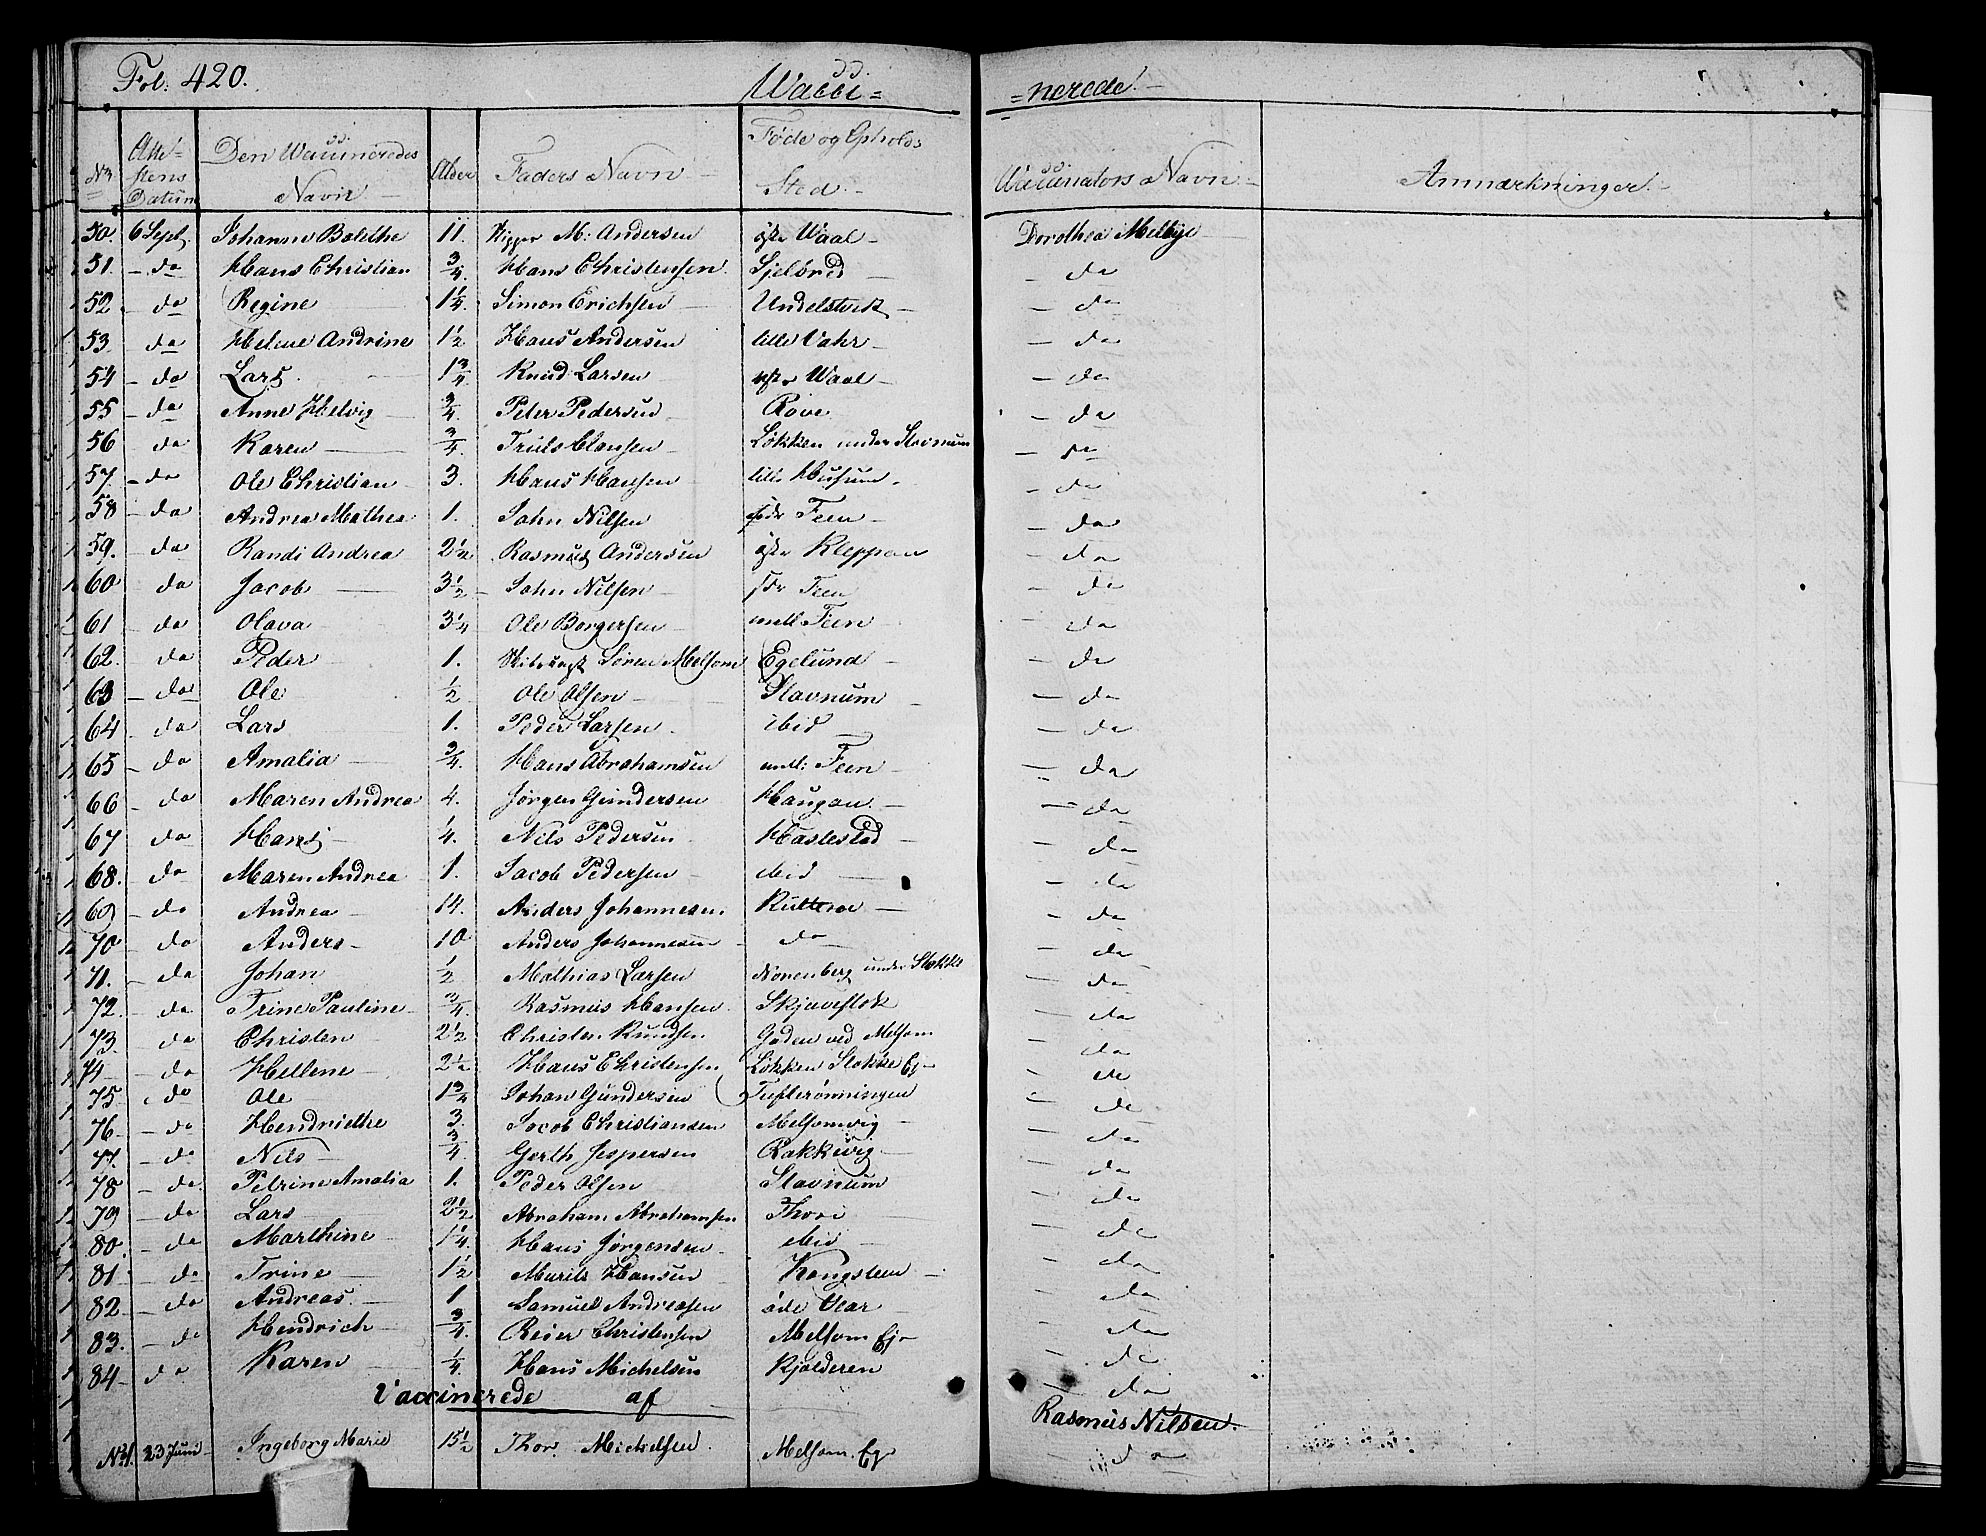 Fol: 420.
Wacci=
=nerede.
No Atte-stens Datum Den Waccineredes Navn. Alder Faders Navn Føde og Opholds Sted. Waccinators Navn Anmærkninger.
50. 6 Sept. Johanne Bolethe 11. M: Andersen Waal Dorothea Melbye
51. da Hans Christian 3/4 Hans Christensen da
52. da Regine 1 1/4 Simon Erichsen Undelstvedt da
53. da Helene Andrine 1 1/2 Hans Andersen lille Vahr da
54 da Lars 1 3/4 Knud Larsen Waal da
55 da Anne Helvig 3/4 Peter Pedersen Røve da
56 da Karen 3/4 Truls Clausen Løkken under Slavnum da
57. da Ole Christian 3. Hans Hansen lille Husum da
58 da Andrea Mathea 1. John Nilsen Feen da
59. da Randi Andrea 2 1/2 Rasmus Andersen Kleppan da
60 da Jacob 3 1/2 John Nilsen Feen da
61 da Olava 3 1/4 Ole Borgersen mell Feen da
62. da Peder 1. Søren Melsom Egelund da
63 da Ole 1/2 Ole Olsen Slavnum da
64 da Lars 1. Peder Larsen ibid da
65 da Amalia 3/4. Hans Abrahamsen mell: Feen da
66 da Maren Andrea 4. Jørgen Gundersen Haugan da
67 da Hans 1/4. Nils Pedersen Haslestad da
68. da Maren Andrea 1. Jacob Pedersen ibid da
69 da Andrea 14. Anders Johannesen da
70 da Anders 10 Anders Johannesen do da
71. da Johan 1/2 Mathias Larsen Nonenberg under Stokke da
72. da Trine Pauline 3/4. Rasmus Hansen Skjæveslok da
73. da Christen 2 1/2 Christen Knudsen Gaden ved Melsom da
74 da Hellene 2 1/2 Hans Christensen Løkken Stokke Ej da
75 da Ole 1 3/4 Johan Gundersen Tufterønningen da
76 da Hendriethe 3. Jacob Christiansen Melsomvig da
77. da Nils 3/4 Gerth Jespersen Rakkevig da
78 da Petrine Amalia 1. Peder Olsen Slavnum da
79 da Lars 2 1/2 Abraham Abrahamsen da
80. da Marthine 1 1/4. Hans Jørgensen ibid da
81 da Trine 1 1/2 Murits Hansen Kongsteen da
82. da Andreas 1 Samuel Andreasen øde Vear da
83. da Hendrich 3/4. Reier Christensen Melsom Ej da
84 da Karen 1/4. Hans Michelsen Kjalderen da
Vaccinerede af Rasmus Nilsen.
No 1. 23 Juni Ingeborg Marie 15 1/2 Thor Michelsen. Melsom Ej da